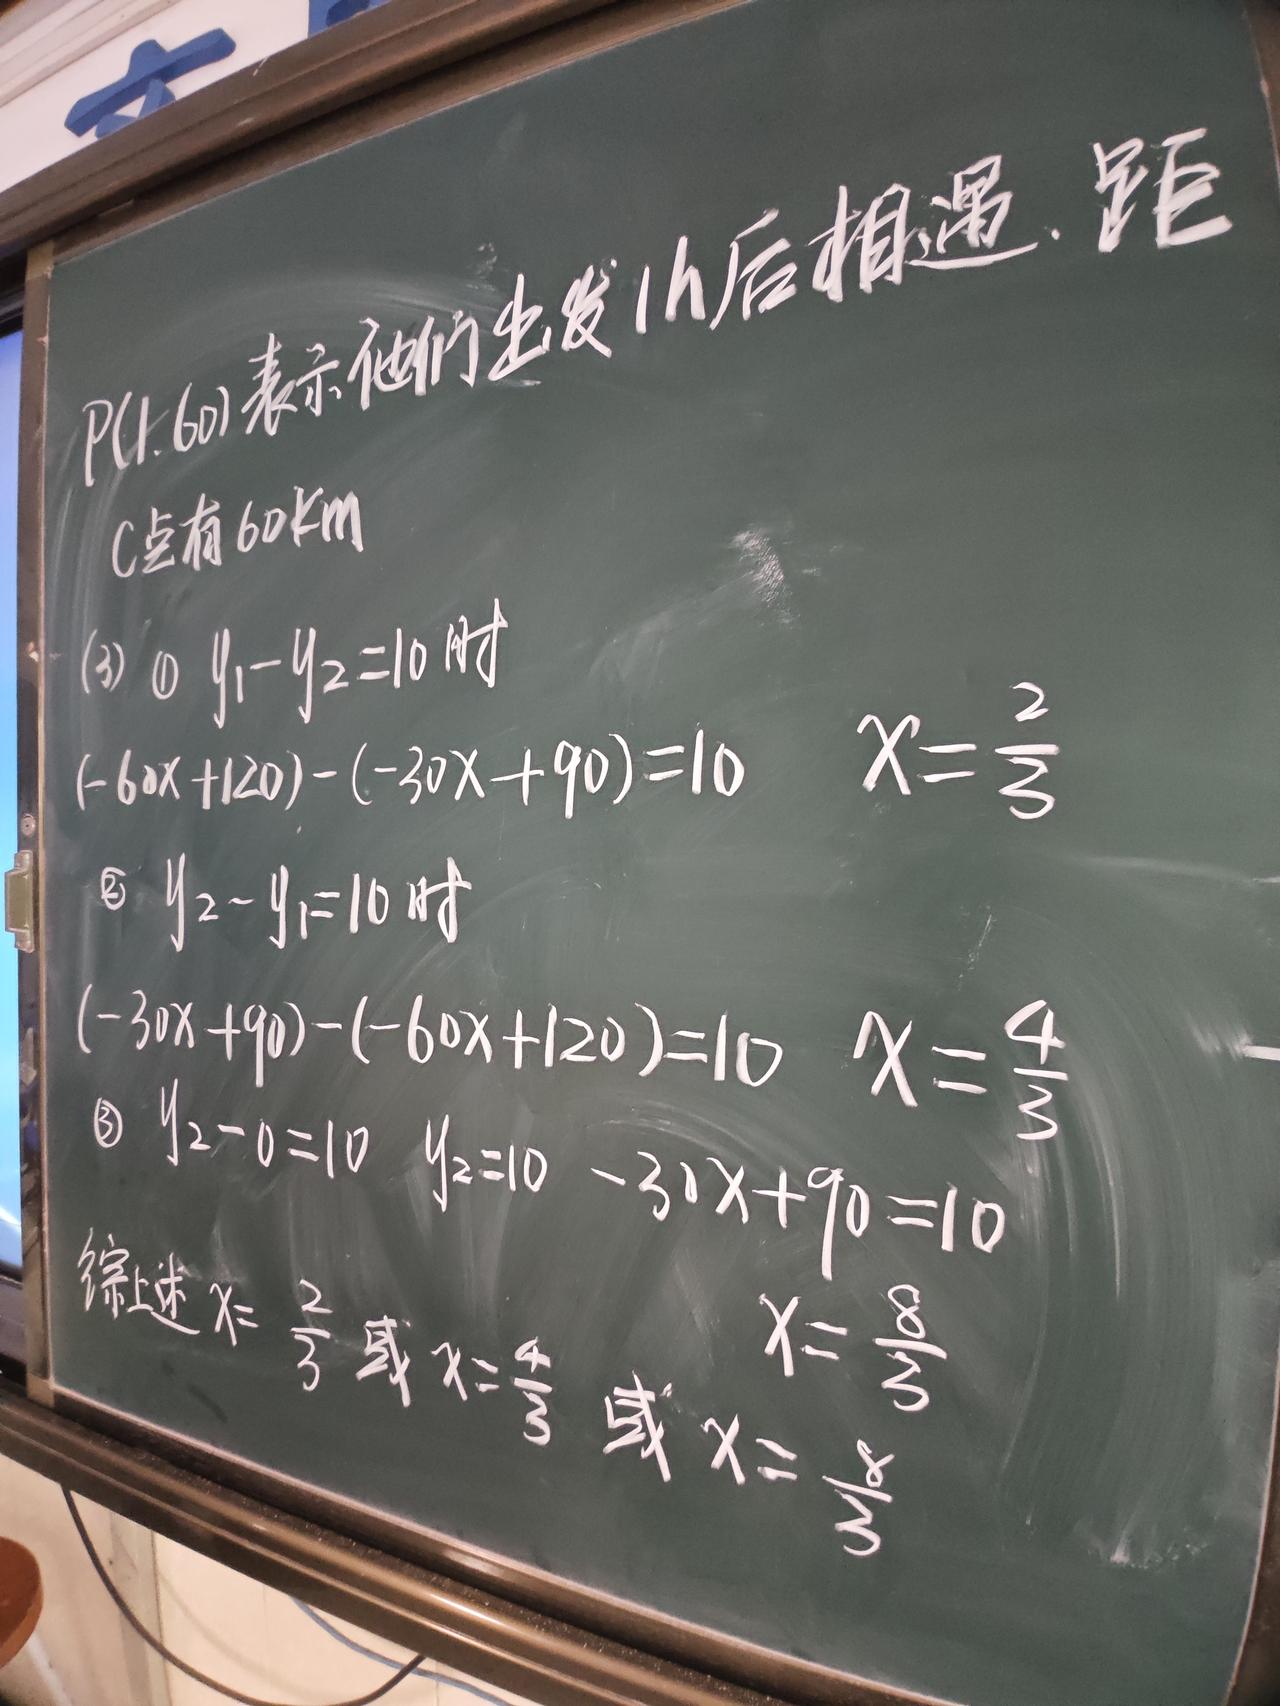 P(1.60)表示他们出发1h后相遇.距
C点有60km
(3) ① y₁-y₂=10时
(-60x+120)-(-30x+90)=10 x=2/3
② y₂-y₁=10时
(-30x+90)-(-60x+120)=10 x=4/3
③ y₂-0=10 y₂=10 -30x+90=10
x=8/3
综上述 x=2/3 或 x=4/3 或 x=8/3